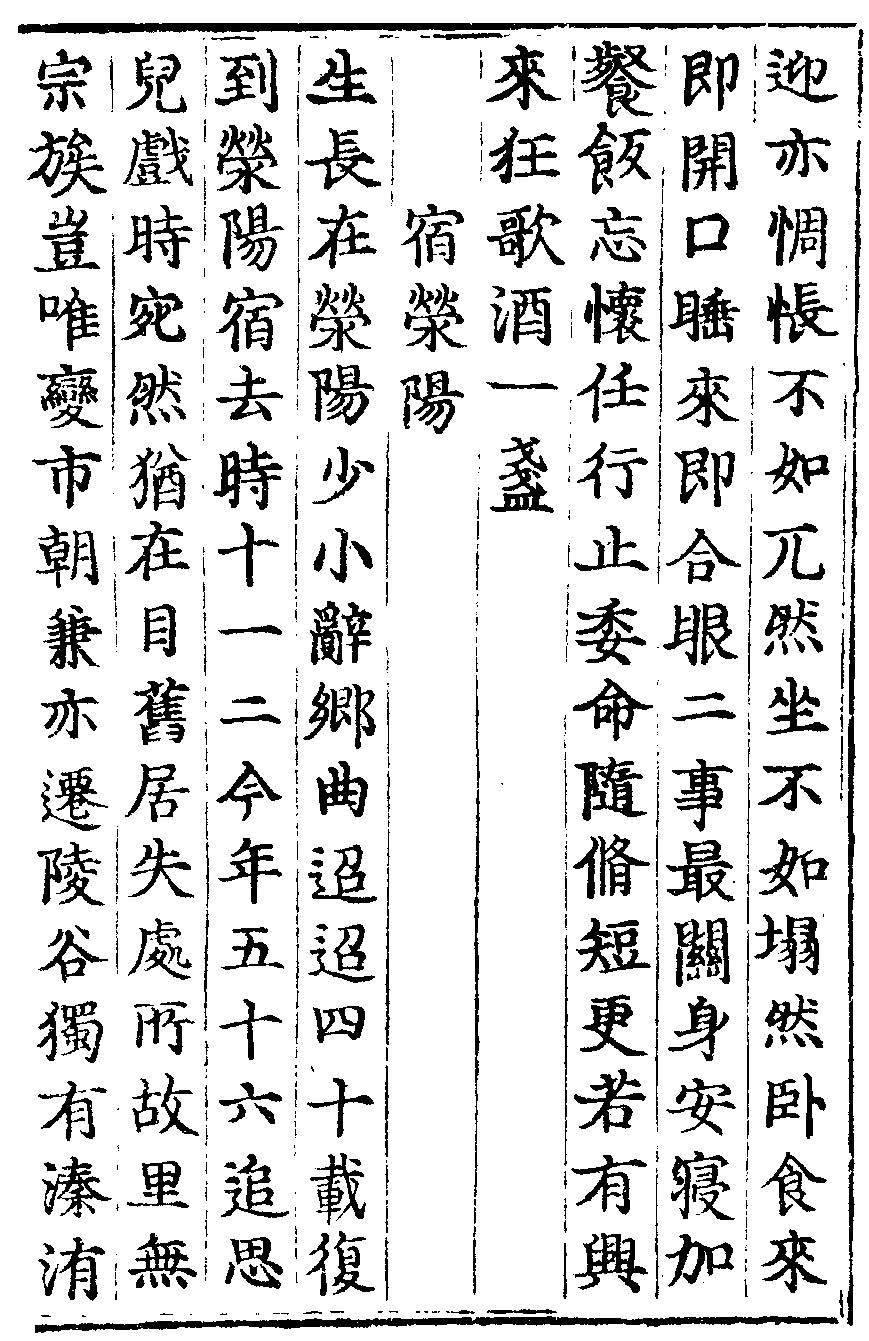 迎亦惆悵不如兀然坐不如塌然卧食來
即開口睡來即合眼二事最關身安寢加
餐飯忘懷任行止委命隨脩短更若有興
來狂歌酒一盞
宿滎陽
生長在滎陽少小辭鄉曲迢迢四十載復
到滎陽宿去時十一二今年五十六追思
兒戲時宛然猶在目舊居失處所故里無
宗族豈唯變市朝兼亦遷陵谷獨有溱洧